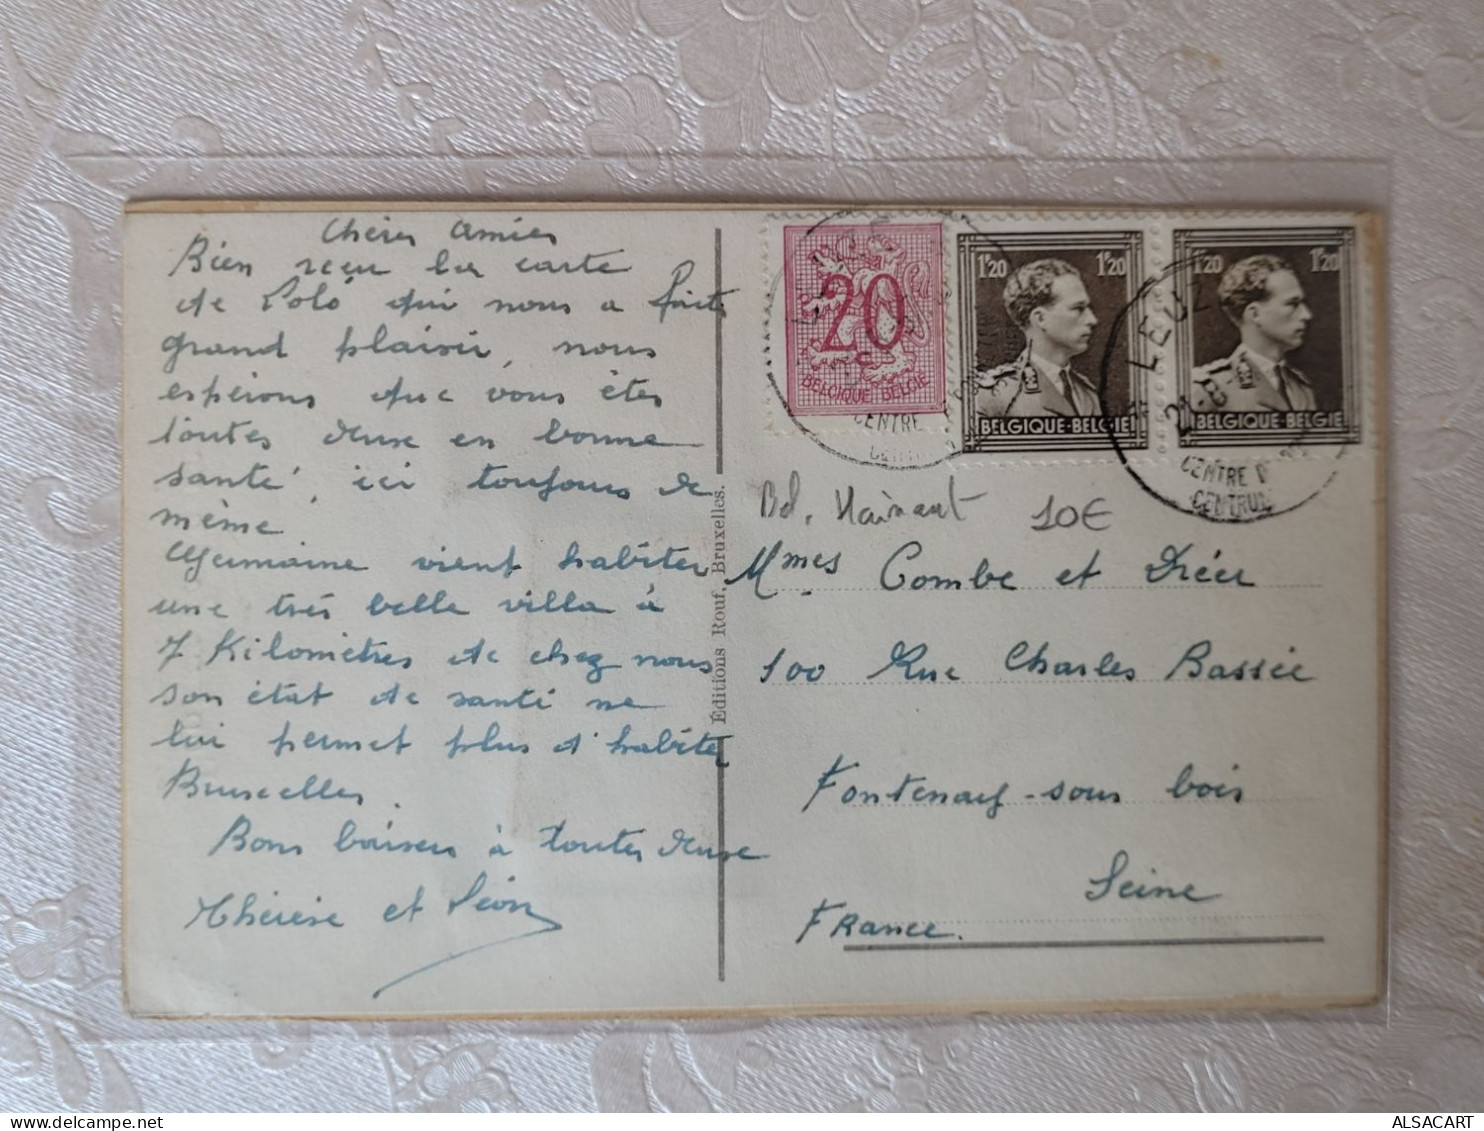 Chères Amies
Bien reçu la carte
de Lolo qui nous a faits
grand plaisir, nous
espérons que vous êtes
toutes deux en bonne
santé, ici toujours de
même
Germaine vient habiter
une très belle villa à
7 Kilomètres de chez nous
son état de santé ne
lui permet plus d'habiter
Bruxelles.
Bons baisers à toutes deux
Thérèse et Léon
Éditions Rouf, Bruxelles.
20
BELGIQUE BELGIE
CENTRE
1'20 1'20
BELGIQUE-BELGIE
1'20 1'20
BELGIQUE-BELGIE
LEUZ
CENTRE D
CENTRUM
Bd. Hainaut 10€
Mmes Combe et
100 Rue Charles Bassée
Fontenay-sous bois
Seine
France.
ALSACART